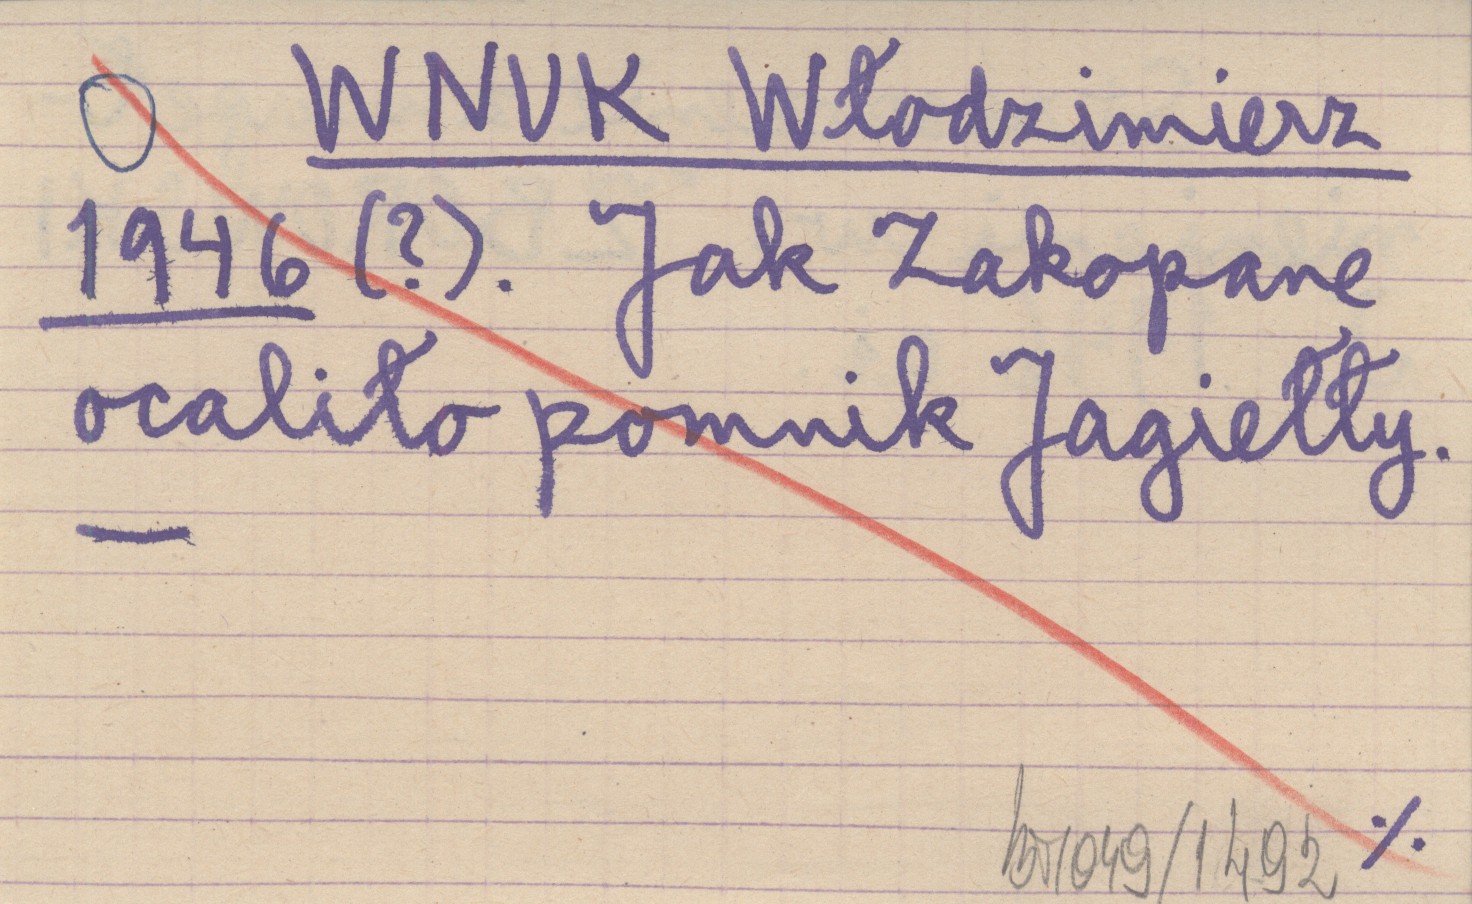 WNUK Włodzimierz
1946 (?). Jak Zakopane
ocaliło pomnik Jagiełły.
—
049/1492 ./.